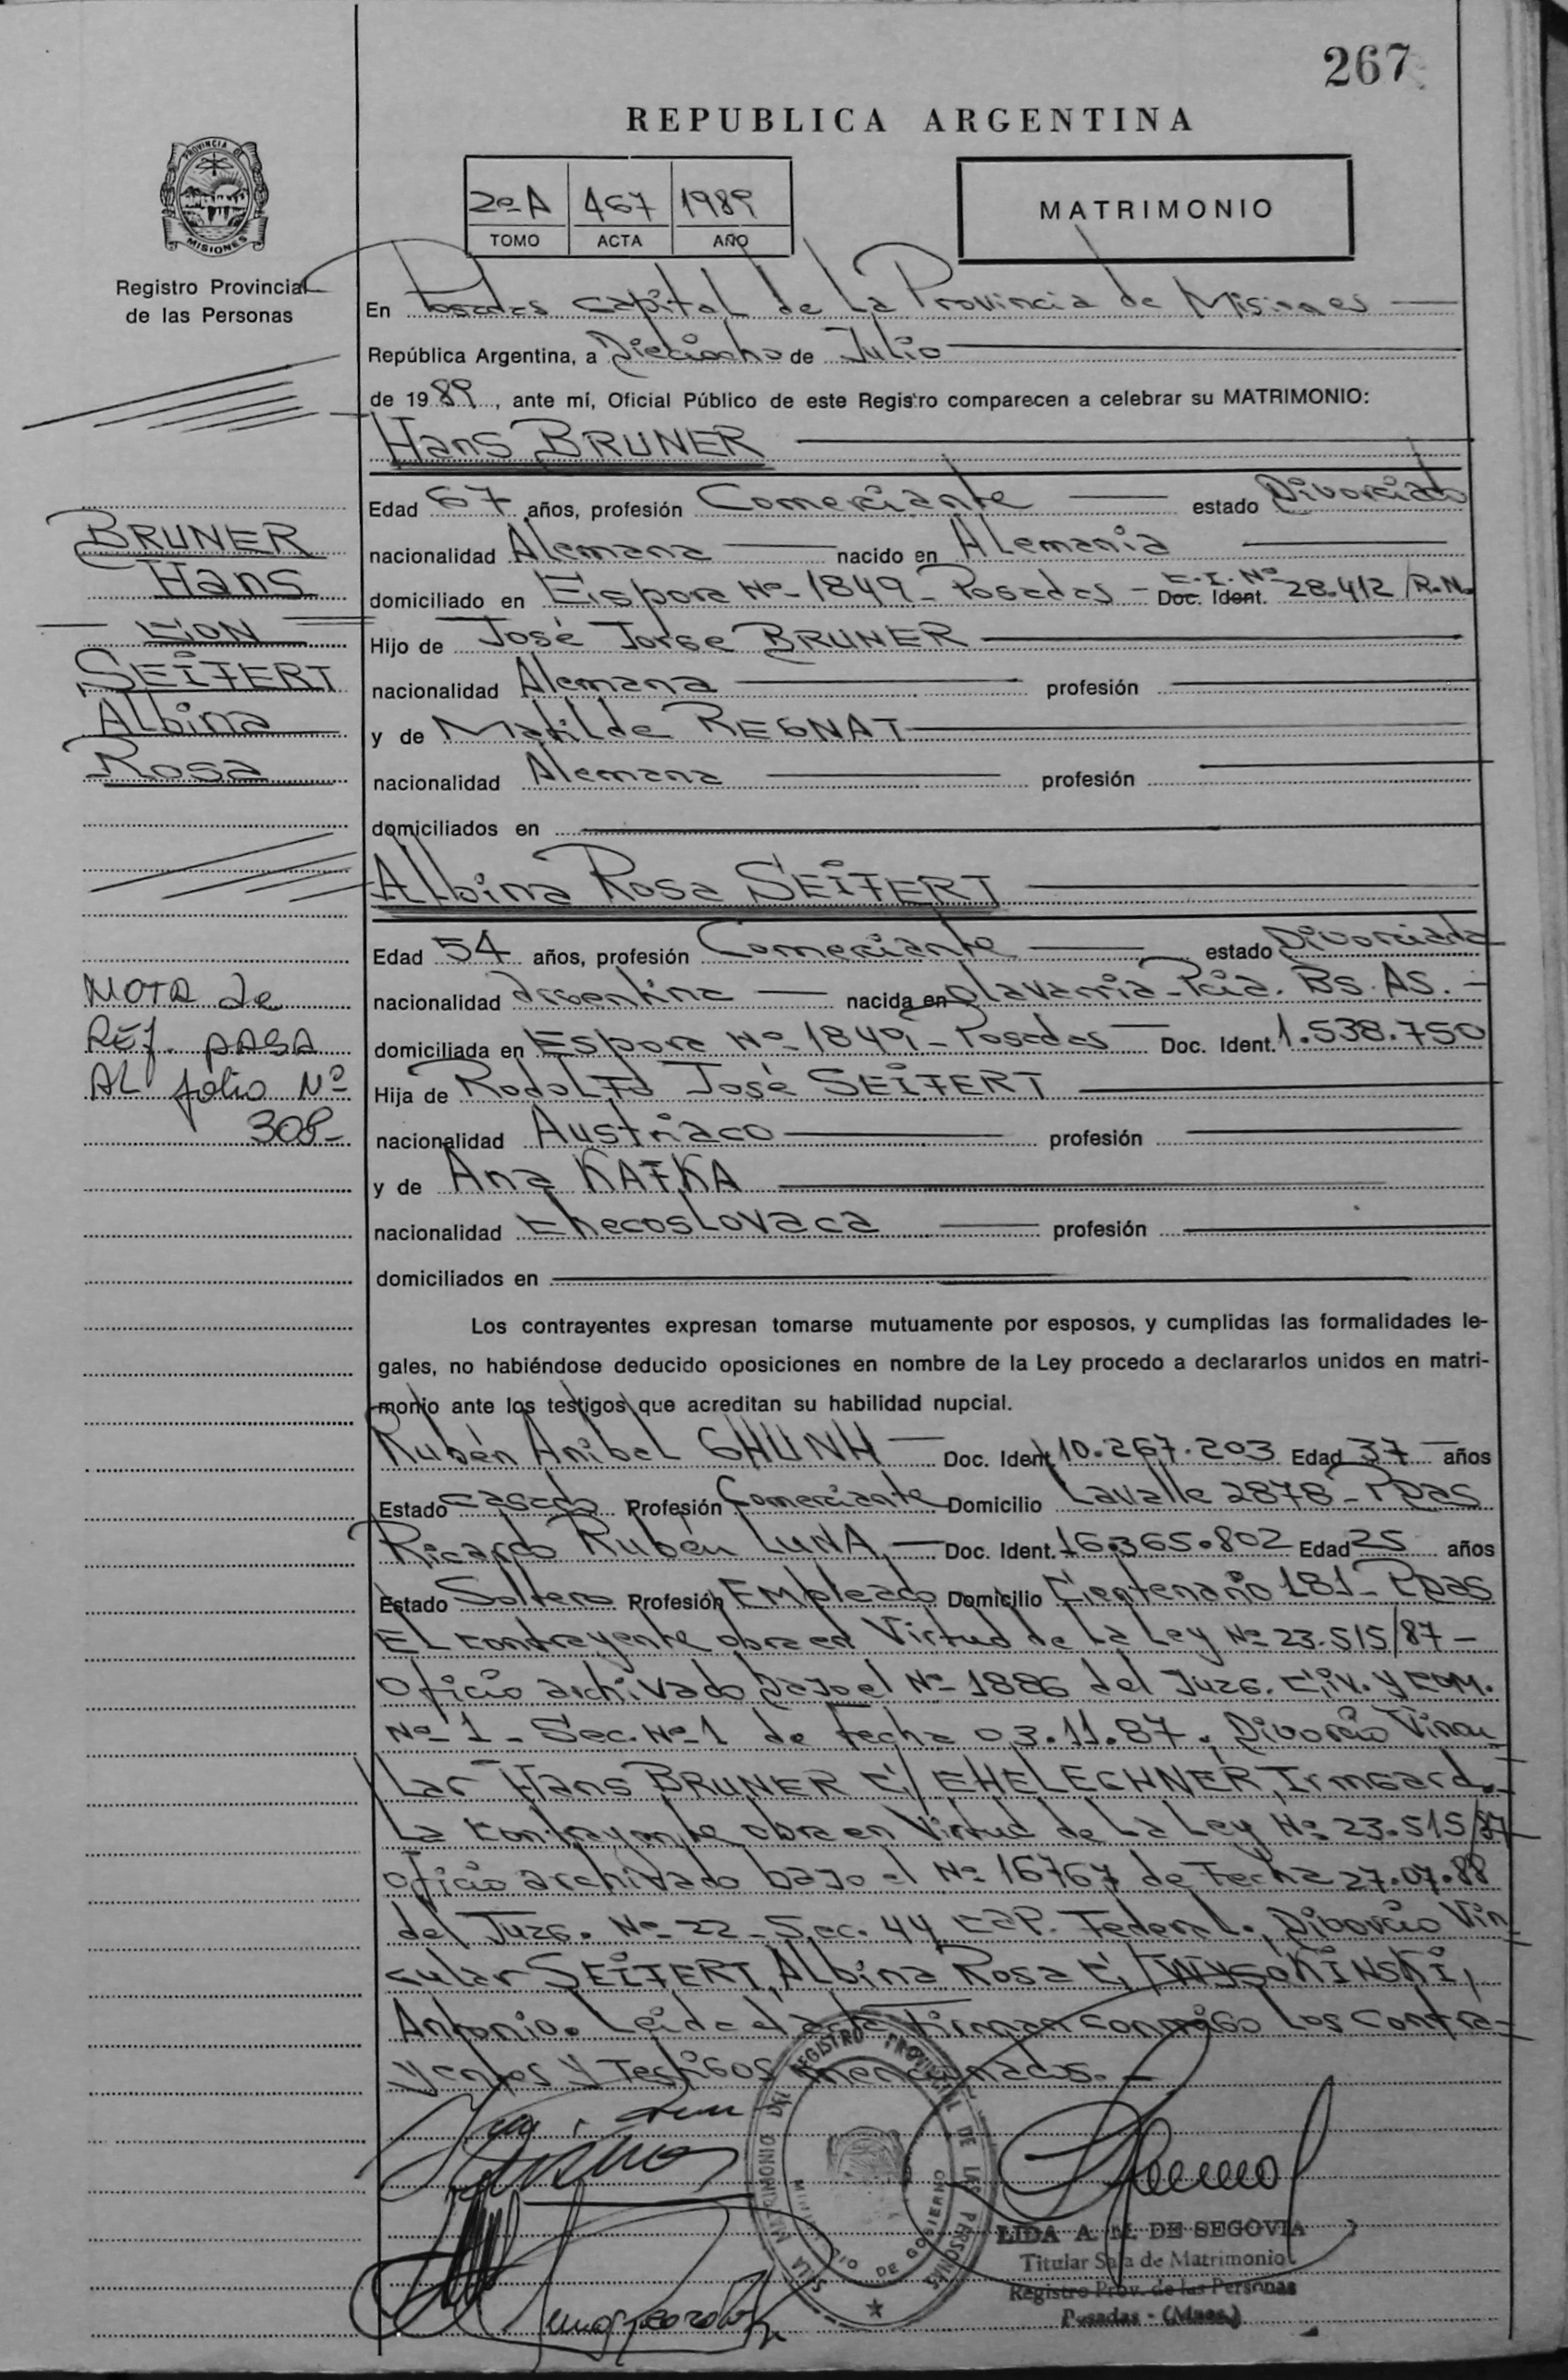 267
REPUBLICA ARGENTINA
PROVINCIA DE
MISIONES
2º A 467 1989
TOMO ACTA AÑO
MATRIMONIO
Registro Provincial
de las Personas
En Posadas Capital de La Provincia de Misiones
República Argentina, a Dieciocho de Julio
de 1989, ante mí, Oficial Público de este Registro comparecen a celebrar su MATRIMONIO:
Hans BRUNER
Edad 67 años, profesión Comerciante estado Divorciado
nacionalidad Alemana nacido en Alemania
domiciliado en Espora Nº 1849 - Posadas - C.I. Nº Doc. Ident. 28.412/R.N.
Hijo de José Jorge BRUNER
nacionalidad Alemana profesión
y de Matilde REGNAT
nacionalidad Alemana profesión
domiciliados en
BRUNER
Hans
CON
SEIFERT
Albina
Rosa
Albina Rosa SEIFERT
Edad 54 años, profesión Comerciante estado Divorciada
nacionalidad Argentina nacida en Olavarria - Pcia. Bs. As. -
domiciliada en Espora Nº 1849 - Posadas Doc. Ident. 1.538.750
Hija de Rodolfo José SEIFERT
nacionalidad Austriaco profesión
y de Ana KAFKA
nacionalidad Checoslovaca profesión
domiciliados en
NOTA de
REF. PASA
AL folio Nº
308-
Los contrayentes expresan tomarse mutuamente por esposos, y cumplidas las formalidades le-
gales, no habiéndose deducido oposiciones en nombre de la Ley procedo a declararlos unidos en matri-
monio ante los testigos que acreditan su habilidad nupcial.
Rubén Anibal Doc. Ident. 10.267.203 Edad 37 años
Estado casado Profesión Comerciante Domicilio Lavalle 2878 - Pdas
Ricardo Rubén LUNA Doc. Ident. 16.365.802 Edad 25 años
Estado Soltero Profesión Empleado Domicilio Centenario 181 - Pdas
El contrayente obra en Virtud de La Ley Nº 23.515/87 -
Oficio archivado bajo el Nº 1886 del Juzg. Civ. y Com.
Nº 1 - Sec. Nº 1 de Fecha 03.11.87, Divorcio Vincu
lar Hans BRUNER C/ EHELECHNER, Irmgard.
La contrayente obra en Virtud de La Ley Nº 23.515/87
Oficio archivado bajo el Nº 16767 de Fecha 27.07.88
del Juzg. Nº 22 - Sec. 44 Cap. Federal. Divorcio Vin
cular SEIFERT, Albina Rosa C/ WYSOKINSKI,
Antonio. Leida el acta Firman conmigo Los Contra-
yentes y Testigos mencionados.-
REGISTRO PROVINCIAL DE LAS PERSONAS
SALA MATRIMONIO DEL
MINISTERIO DE GOBIERNO
LIDA A. M. DE SEGOVIA
Titular Sala de Matrimonio
Registro Prov. de las Personas
Posadas - (Mnes.)